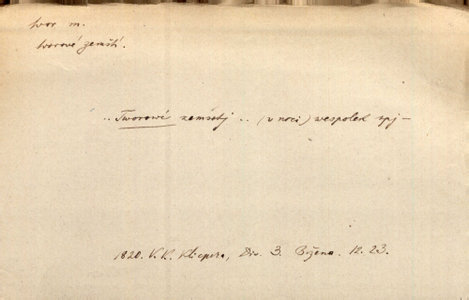 tvor m.
tvorové zemští.
.. Tworowé zemsstj .. (v noci) wespolek spj –
1820. V. K. Klicpera, Div. 3. Božena. 12. 23.